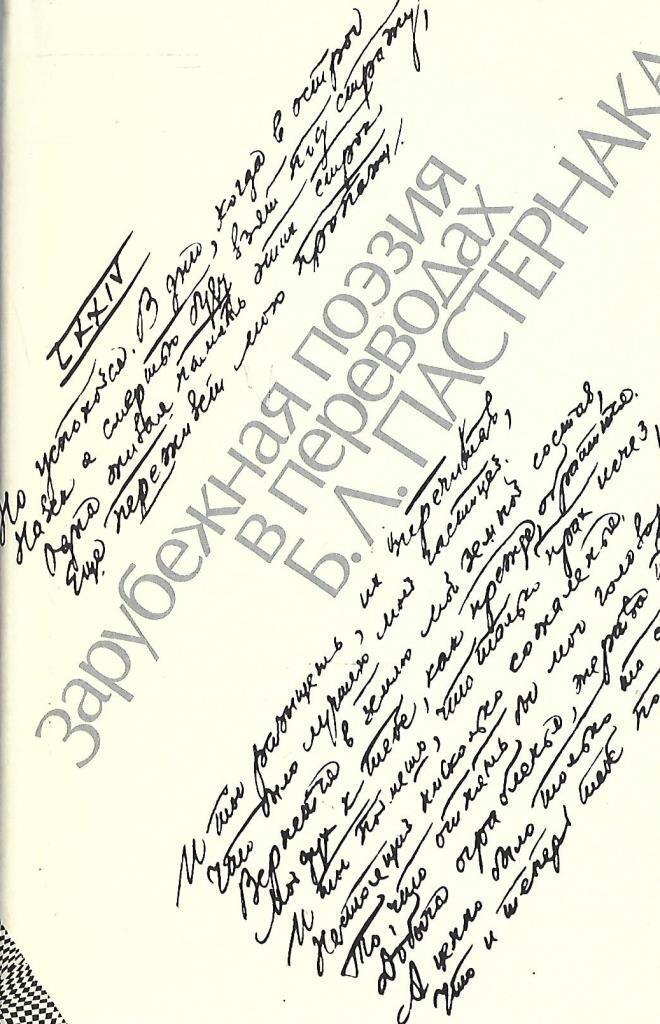 LXXIV
Но успокойся. В дни, когда в острог
Навек я смертью буду взят под стражу,
Одна живая память этих строк
Еще переживет мою пропажу.
Зарубежная поэзия
в переводах
Б. Л. ПАСТЕРНАКА
И ты разыщешь, их перечитав,
Что было лучшею моей частицей.
Вернется в землю мой земной состав,
Мой дух к тебе, как прежде, обратится.
И ты поймешь, что только прах исчез,
Не стоящий нисколько сожаленья.
То, что отнять бы мог головор
Добыча ограбленья, жертва
А ценно было только то
Что и теперь тебе по